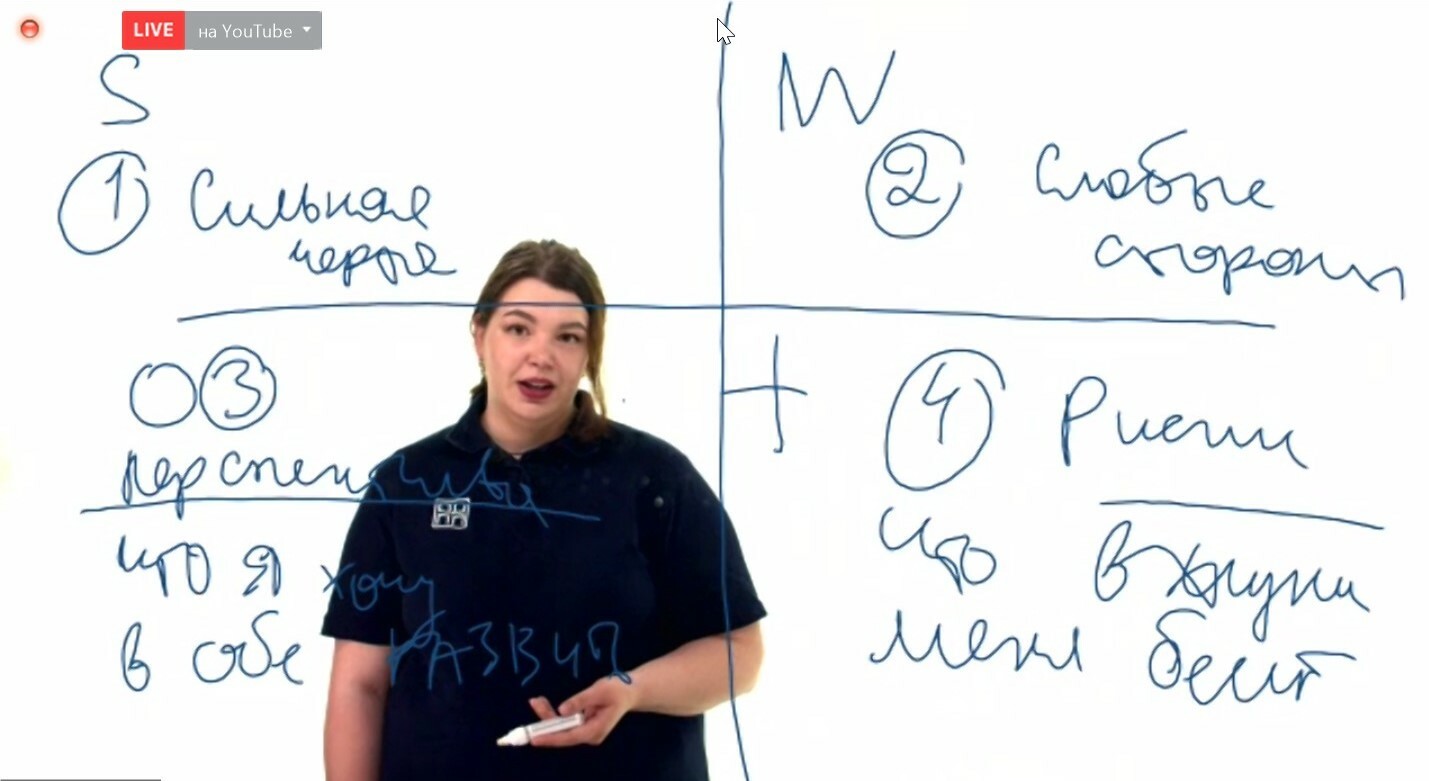 LIVE на YouTube
S
① Сильная
черта
W
② Слабые
стороны
О ③
перспективы
что я хочу
в себе РАЗВИТЬ
T
④ Риски
что внутри
меня бесит